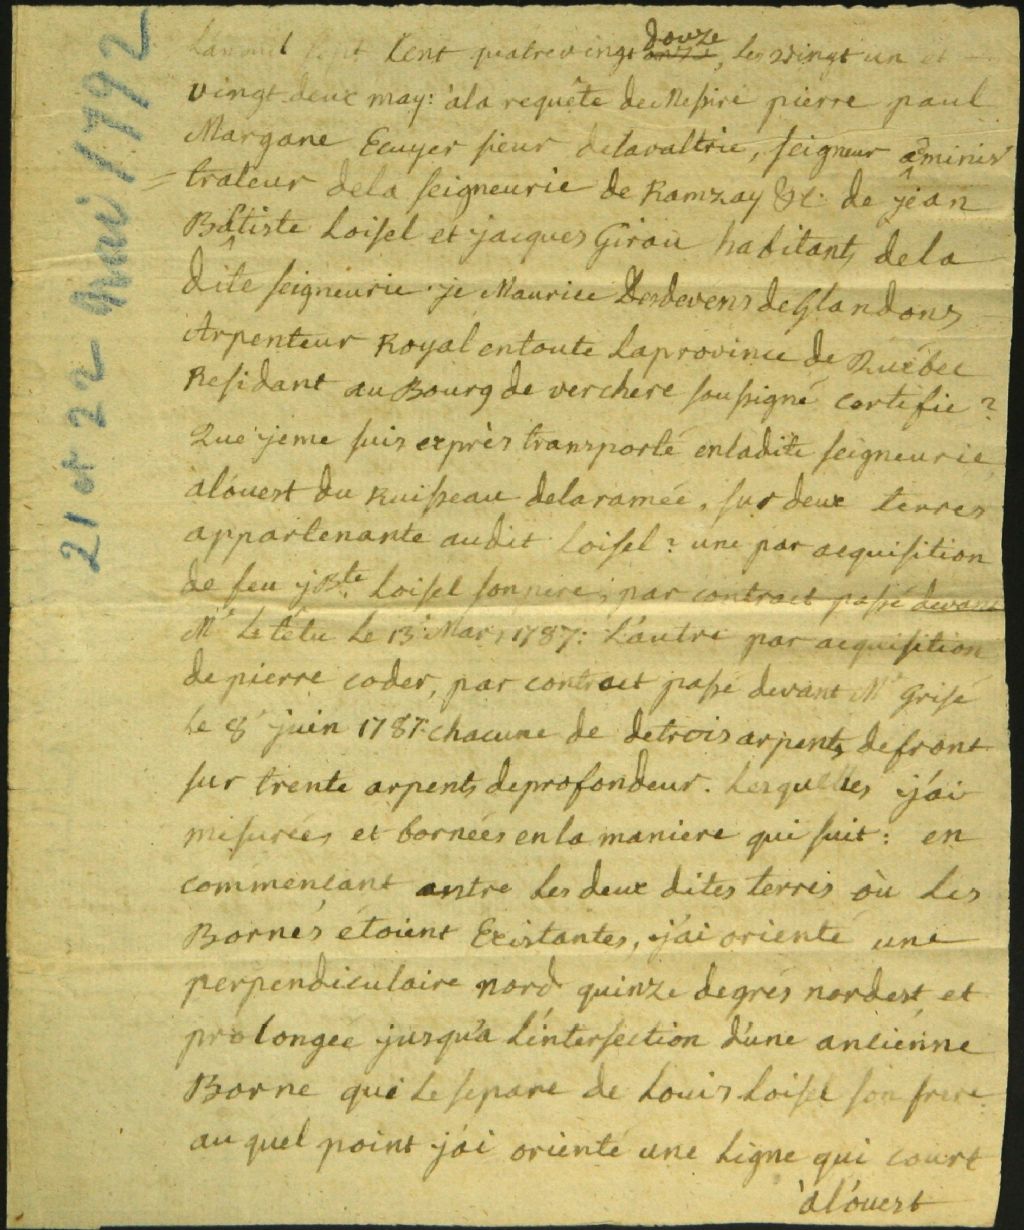 21 et 22 mai 1792
L'an mil sept cent quatrevingt onze douze, les vingt un et
vingt deux may: à la requête de Messire pierre paul
Margane Ecuyer sieur delavaltrie, seigneur aminis
trateur dela seigneurie de Ramzay &c: de jean
Bâtiste Loisel et jacques Girou habitants dela
dite seigneurie je Maurice Desdevens de Glandons
Arpenteur Royal entoute Laprovince de Québec
Residant au Bourg de verchere soussigné certifie ?
Que jeme suis exprès transporté enladite seigneurie
alouest du Ruisseau delaramée, sur deux terres
appartenante audit Loisel ? une par acquisition
de feu jBte Loisel sonpere, par contract passé devant
Me Letétu Le 13 Mars 1787: L'autre par acquisition
de pierre coder, par contract passé devant Me Grisé
Le 8 juin 1787: chacune de detrois arpents defront
sur trente arpents deprofondeur. Lesquelles j'ai
mesurées et bornées enla maniere qui suit: en
commençant antre Les deux dites terres où Les
Bornes étoient Existantes, j'ai orienté une
perpendiculaire nord quinze degrés nordest et
prolongée jusqu'a L'intersection d'une anciénne
Borne qui Le separe de Louis Loisel son frere
au quel point j'ai orienté une Ligne qui court
à l'ouest